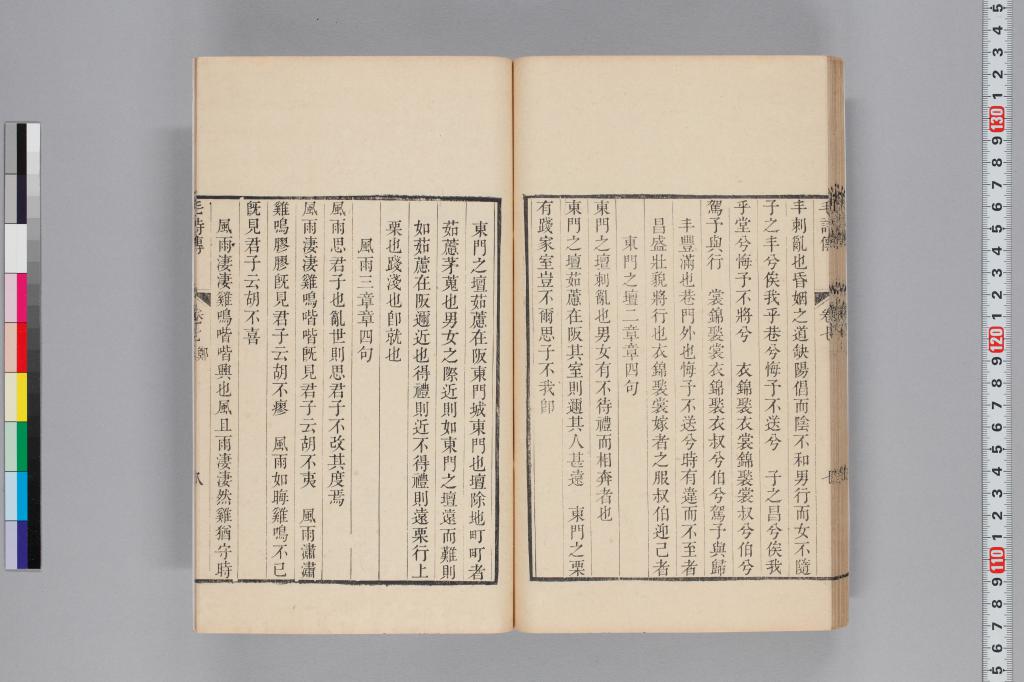 丰刺亂也昏姻之道缺陽倡而陰不和男行而女不隨
子之丰兮俟我乎巷兮悔予不送兮　子之昌兮俟我
乎堂兮悔予不將兮　衣錦褧衣裳錦褧裳叔兮伯兮
駕予與行　裳錦褧裳衣錦褧衣叔兮伯兮駕予與歸
丰豐滿也巷門外也悔予不送兮時有違而不至者
昌盛壯貌將行也衣錦褧裳嫁者之服叔伯迎己者
東門之壇二章章四句
東門之壇刺亂也男女有不待禮而相奔者也
東門之壇茹藘在阪其室則邇其人甚遠　東門之栗
有踐家室豈不爾思子不我卽
東門之壇茹藘在阪東門城東門也壇除地町町者
茹藘茅蒐也男女之際近則如東門之壇遠而難則
如茹藘在阪邇近也得禮則近不得禮則遠栗行上
栗也踐淺也卽就也
風雨三章章四句
風雨思君子也亂世則思君子不改其度焉
風雨淒淒雞鳴喈喈旣見君子云胡不夷　風雨瀟瀟
雞鳴膠膠旣見君子云胡不瘳　風雨如晦雞鳴不已
旣見君子云胡不喜
風雨淒淒雞鳴喈喈興也風且雨淒淒然雞猶守時
毛詩傳　卷七　鄭　八